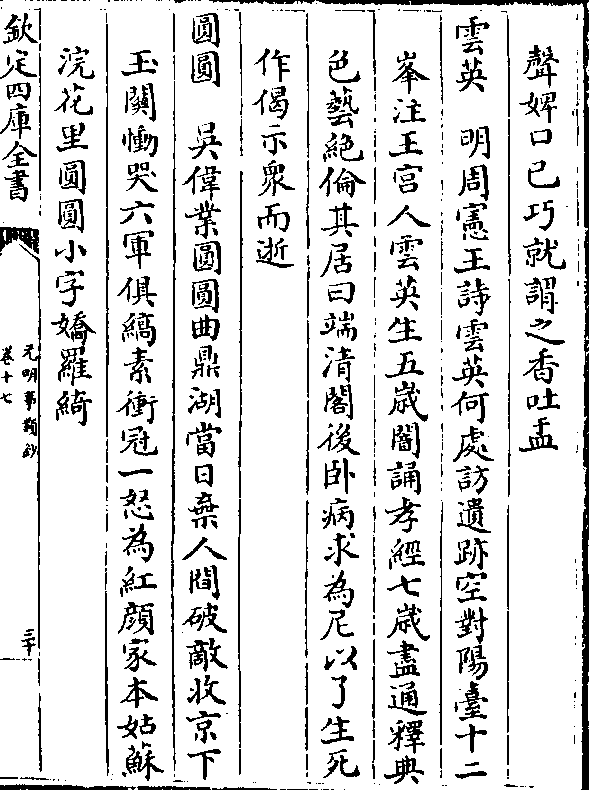 聲婢口已巧就謂之香吐盂
雲英　明周憲王詩雲英何處訪遺跡空對陽臺十二
峯注王宫人雲英生五歲闇誦孝經七歲盡通釋典
色藝絶倫其居曰端清閣後卧病求為尼以了生死
作偈示衆而逝
圓圓　吳偉業圓圓曲鼎湖當日棄人間破敵收京下
玉關慟哭六軍俱縞素衝冠一怒為紅顔家本姑蘇
浣花里圓圓小字嬌羅綺
欽定四庫全書
元明事類鈔
卷十七
三十